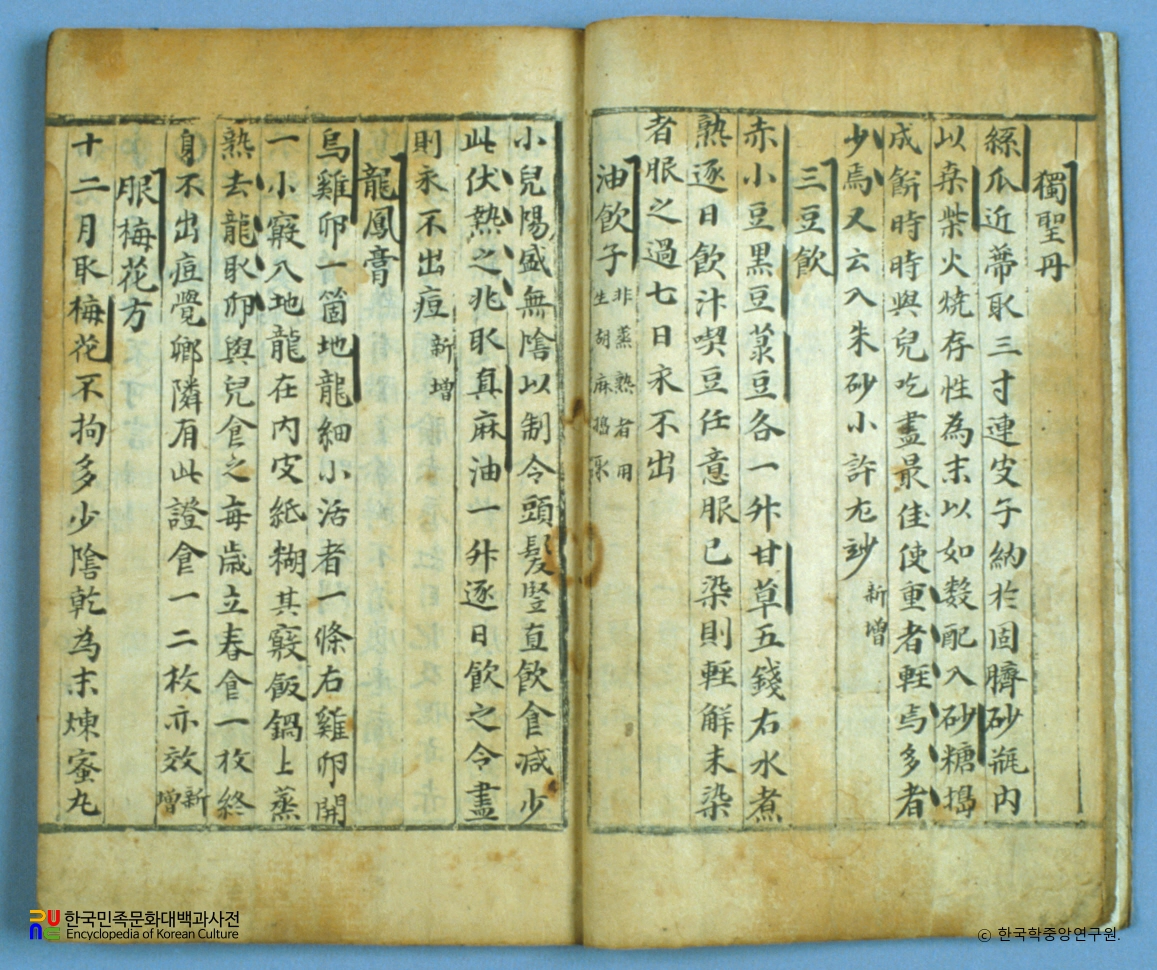 獨聖丹
絲瓜近蔕取三寸連皮子納於固臍砂甁內
以桒柴火燒存性為末以如数配入砂糖搗
成餠時時與兒吃盡最佳使重者輕焉多者
少焉又云入朱砂小許尤玅新增
三豆飮
赤小豆黑豆菉豆各一升甘草五錢右水煮
熟逐日飮汁喫豆任意服已染則輕解未染
者服之過七日永不出
油飮子非蒸熟者用生胡麻搗取
小兒陽盛無隂以制令頭髮竪直飮食减少
此伏熱之兆取真麻油一升逐日飮之令盡
則永不出痘新增
龍鳳膏
烏雞卵一箇地龍細小活者一條右雞卵開
一小竅入地龍在內皮紙糊其竅飯鍋上蒸
熟去龍取卵與兒食之每歳立春食一枚終
身不出痘覺鄉隣有此證食一二枚亦效新增
服梅花方
十二月取梅花不拘多少隂乾為末煉蜜丸
한국민족문화대백과사전
Encyclopedia of Korean Culture
ⓒ 한국학중앙연구원.